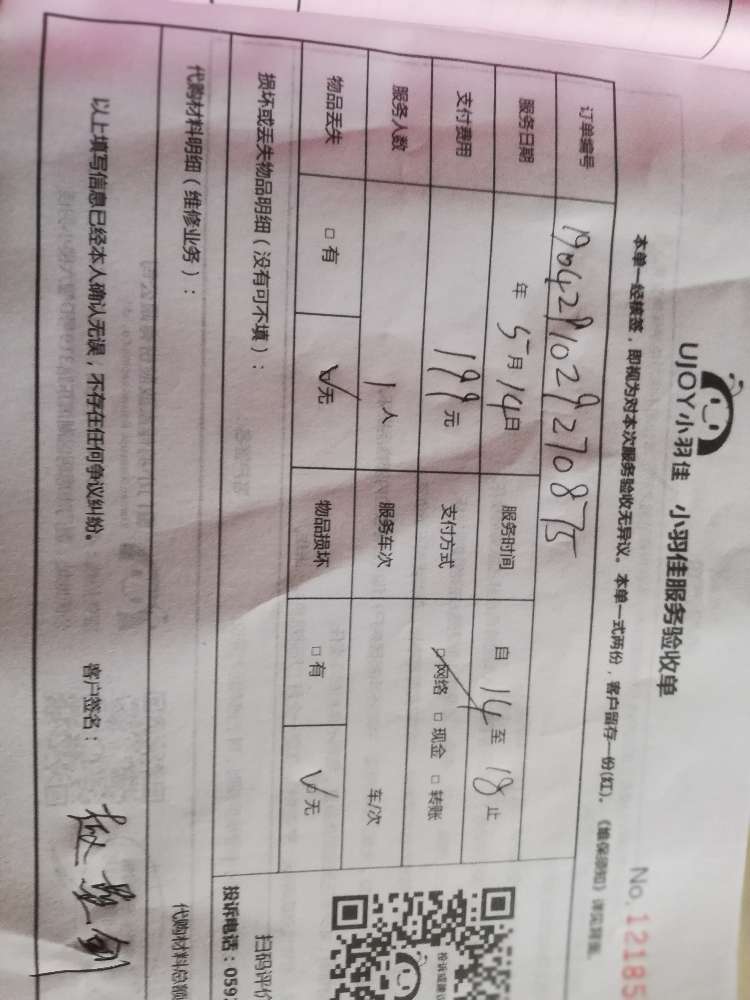 UJOY小羽佳 小羽佳服务验收单
No.12185
本单一经接签，即视为对本次服务验收无异议。本单一式两份，客户留存一份(红)。
订单编号 1904291029270875
服务日期 年 5月14日 服务时间 自 14 至 18 止
支付费用 199元 支付方式 □网络 □现金 □转账
服务人数 1人 服务车次 车/次
物品丢失 □有 □无 物品损坏 □有 □无
损坏或丢失物品明细（没有可不填）：
扫码评价
投诉电话：059
代购材料明细（维修业务）：
代购材料总额
以上填写信息已经本人确认无误，不存在任何争议纠纷。 客户签名：